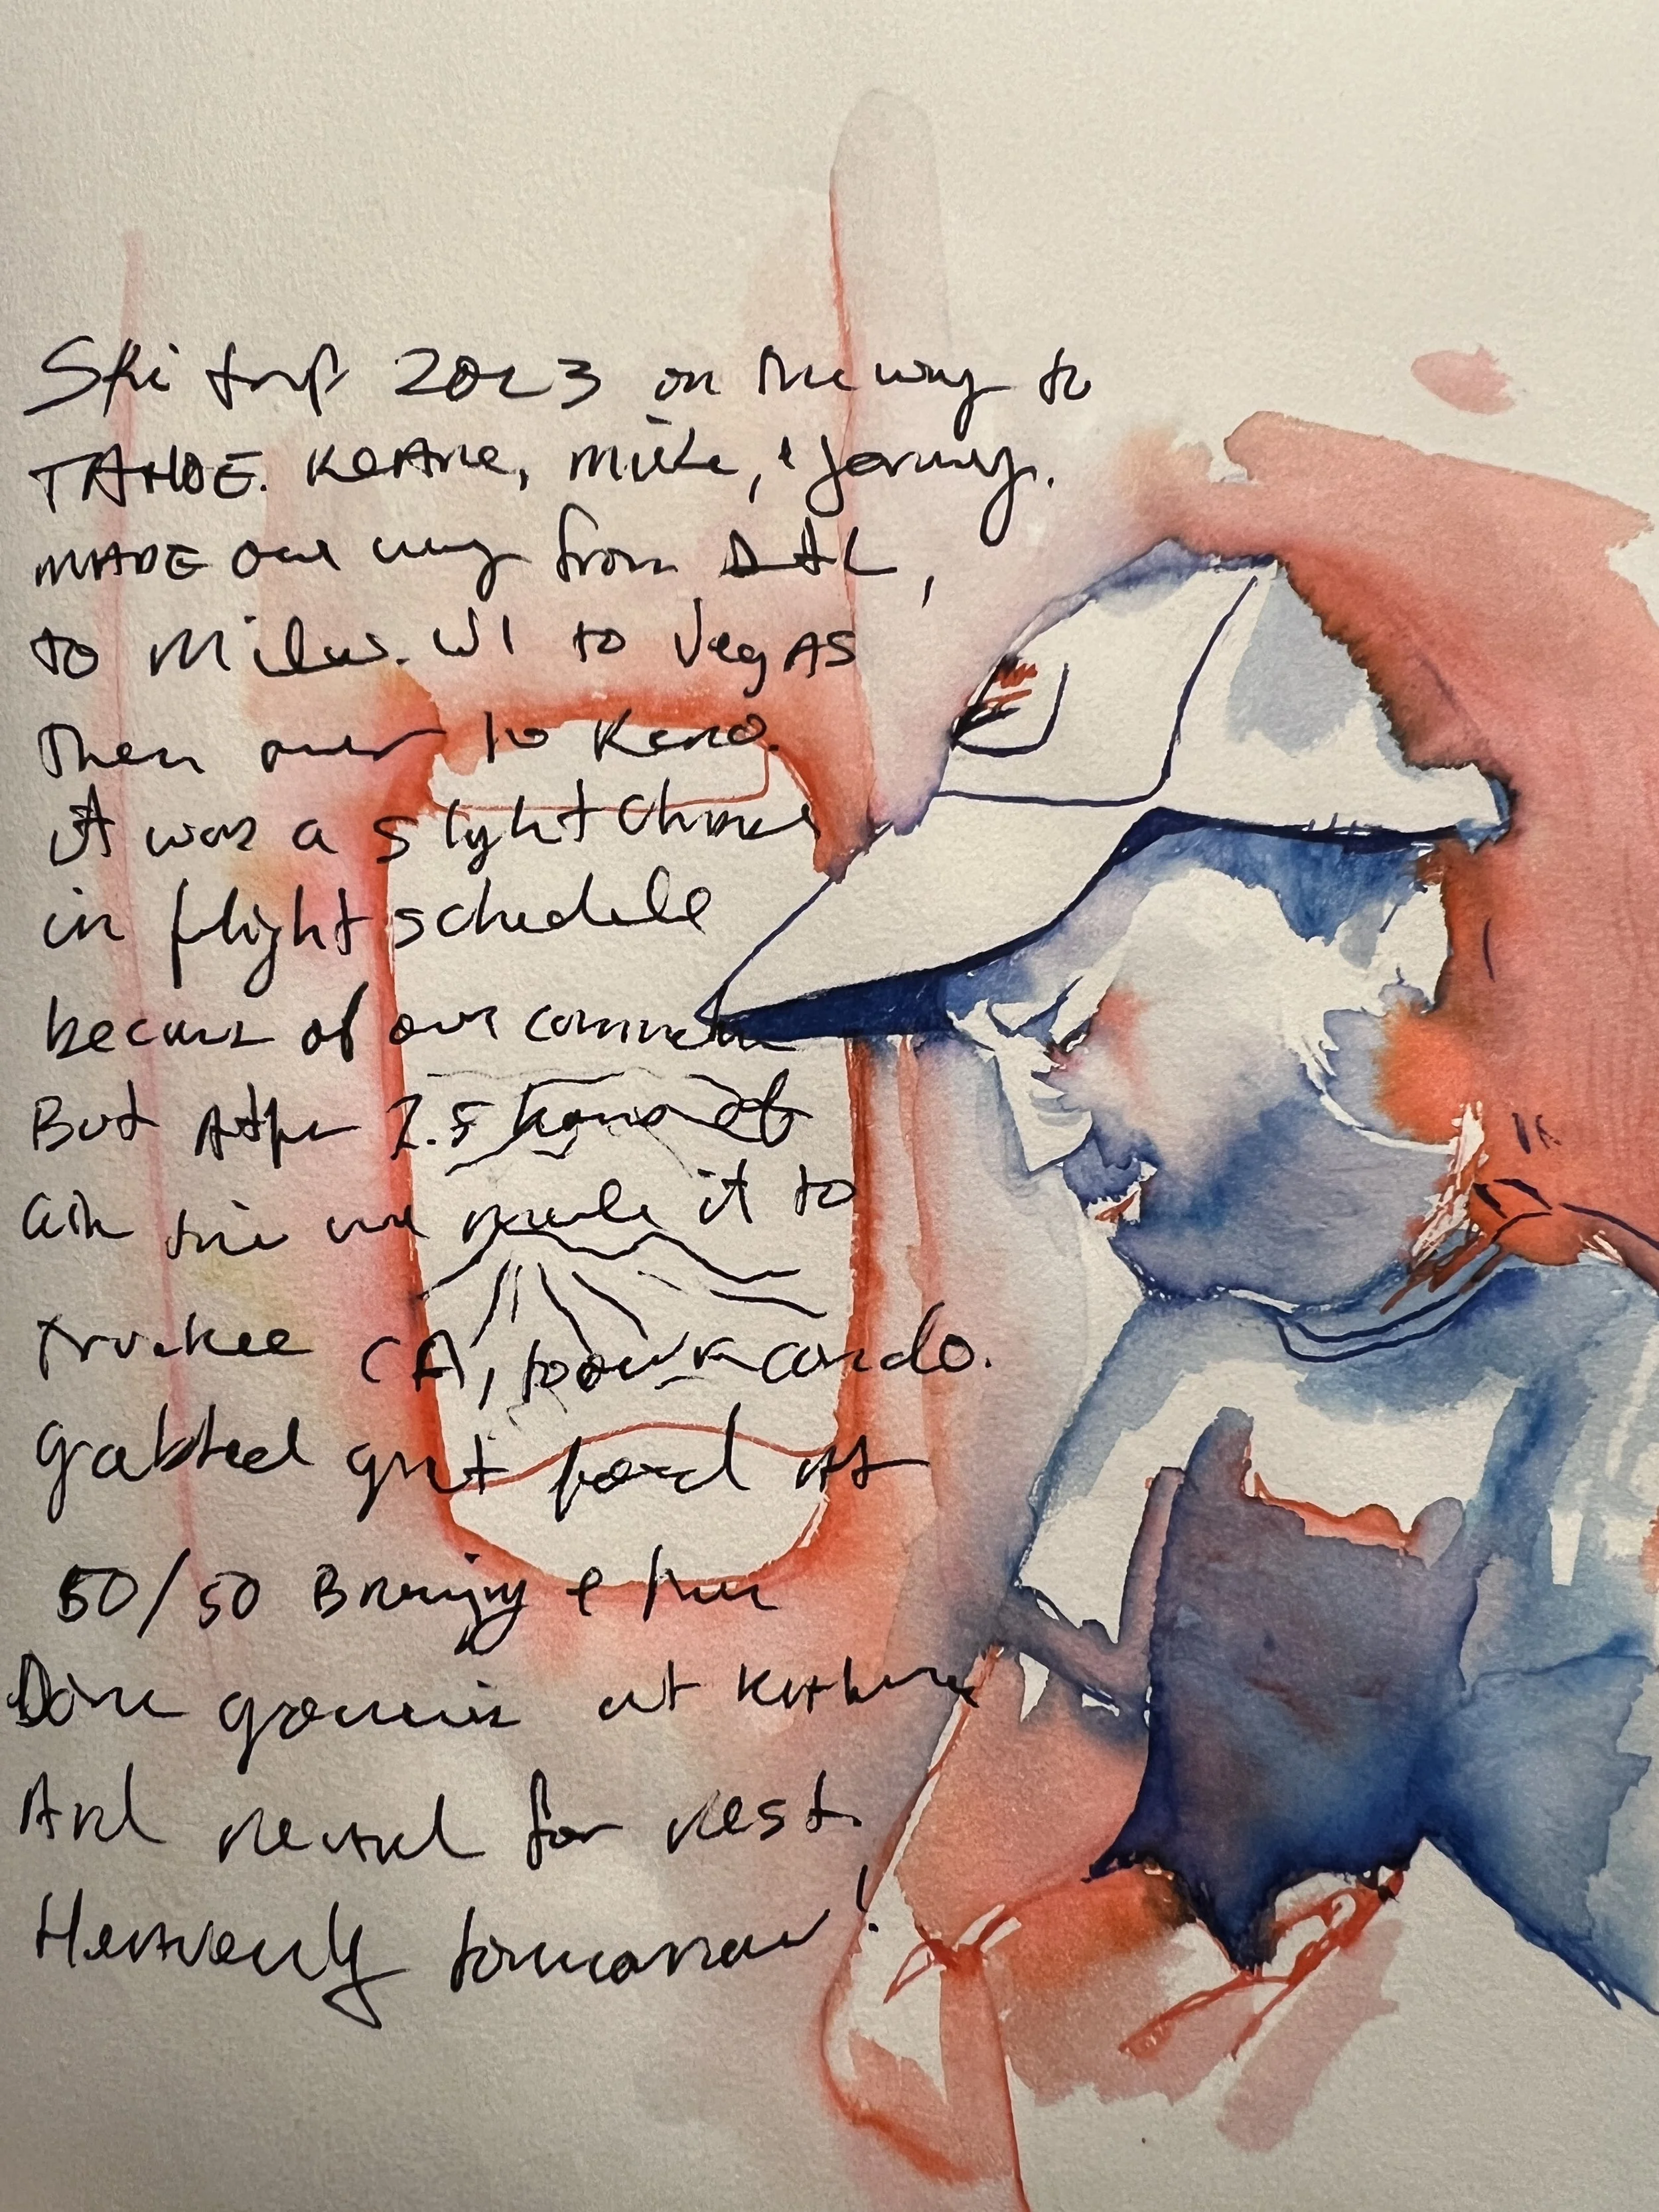 Ski trip 2023 on the way to
TAHOE. KeAne, Mike, & Jeremy.
MADE our way from DAL,
to Milw. WI to VegAS
Then over to Reno.
it was a slight Change
in flight schedule
because of our connect
But After 7.5 hours of
air time we made it to
Truckee CA, to our condo.
grabbed great food at
50/50 Brewing & then
Done at
And for rest.
Heavenly tomorrow!